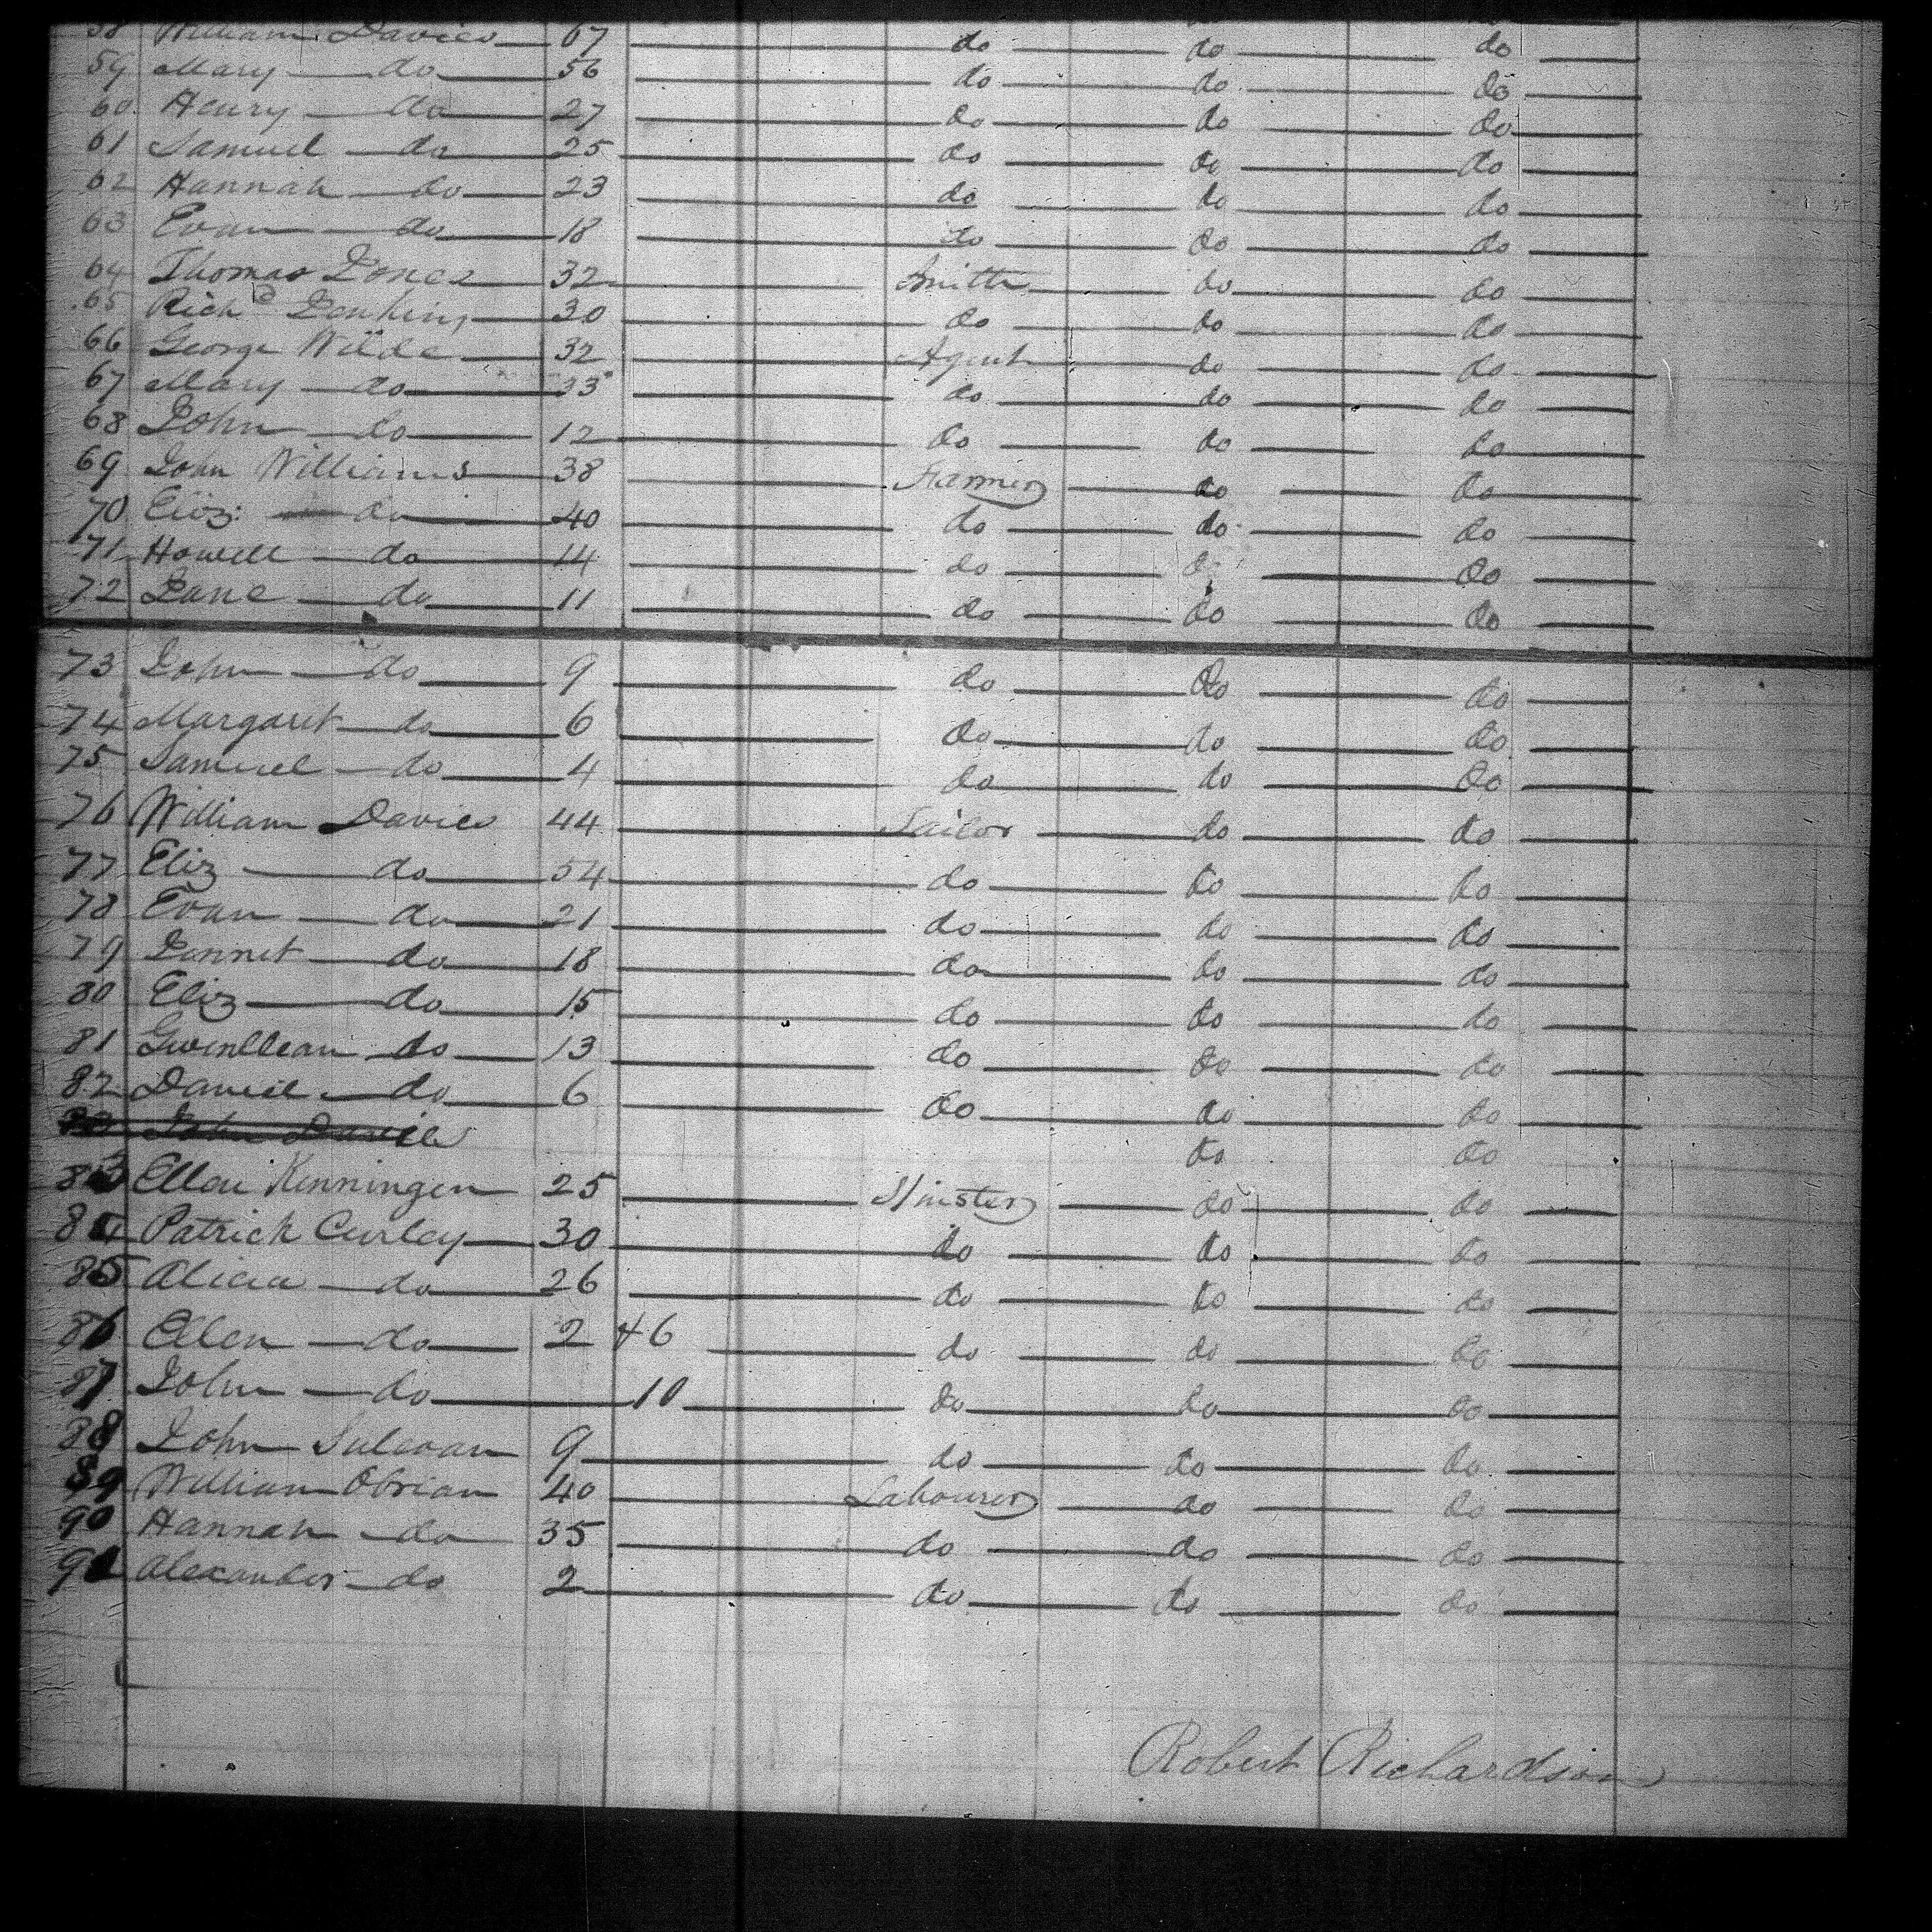 58 William Davies 67 do do do
59 Mary do 56 do do do
60 Henry do 27 do do do
61 Samuel do 25 do do do
62 Hannah do 23 do do do
63 Evan do 18 do do do
64 Thomas Jones 32 Smith do do
65 Richd Jenkins 30 do do do
66 George Wilde 32 Agent do do
67 Mary do 33 do do do
68 John do 12 do do do
69 John Williams 38 Farmer do do
70 Eliz: do 40 do do do
71 Howell do 14 do do do
72 Jane do 11 do do do
73 John do 9 do do do
74 Margaret do 6 do do do
75 Samuel do 4 do do do
76 William Davies 44 Sailor do do
77 Eliz do 54 do do do
78 Evan do 21 do do do
79 Jannet do 18 do do do
80 Eliz do 15 do do do
81 Gwenllean do 13 do do do
82 Daniel do 6 do do do
John do do
83 Ellen 25 do do
84 Patrick Curley 30 do do do
85 Alicia do 26 do do do
86 Ellen do 2 + 6 do do do
87 John do 10 do do do
88 John Sulevan 9 do do do
89 William Obrian 40 Labourer do do
90 Hannah do 35 do do do
91 Alexander do 2 do do do
Robert Richardson